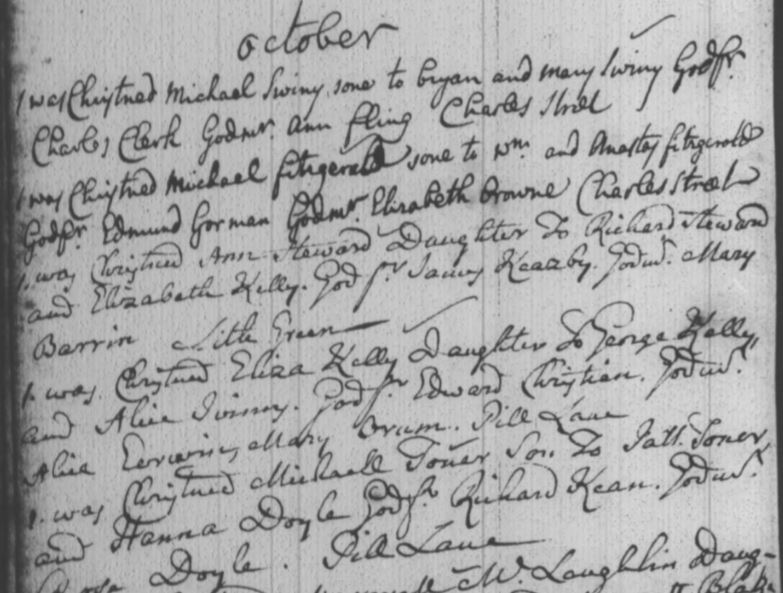 October
1 was Christned Michael Swiny sone to bryan and mary Swiny Godfr.
Charles Clerk Godmr. Ann fling Charles Street
1 was Christned Michael fitzgerald sone to Wm. and Anastas fitzgerald
Godfr. Edmund Gorman Godmr. Elizabeth browne Charles Street
1. was Christned Ann Steward Daughter To Richard Steward
and Elizabeth Kelly. God fr. James Keazby. Godm. Mary
Barrin Little Green
1. was Christned Eliza Kelly Daughter To George Kelly
and Alice Swinny. God fr. Edward Christian. Godm.
Alice Mary Orum. Pill Lane
1. was Christned Michaell Toner Son To Patt. Toner
and Hanna Doyle God fr. Richard Kean. Godm.
Doyle. Pill Lane
Mc. Laughlin Daug-